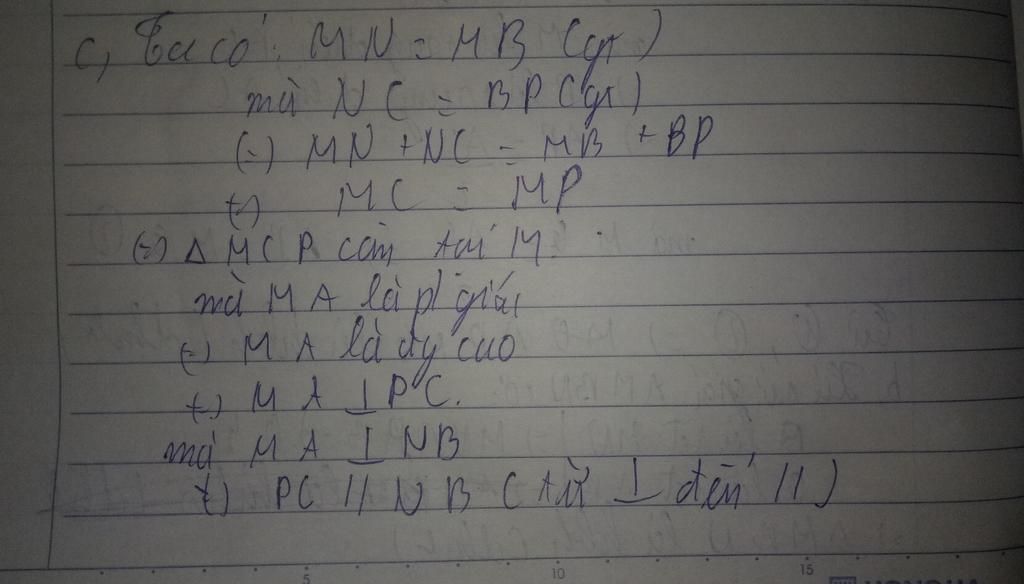 c, Ta có : MN = MB (gt)
mà NC = BP (gt)
(=) MN + NC = MB + BP
(=) MC = MP
(=) Δ MCP cân tại M
mà MA là p/giác
(=) MA là đg cao
(=) MA ⊥ PC.
mà MA ⊥ NB
(=) PC // NB (từ ⊥ đến //)
5 10 15